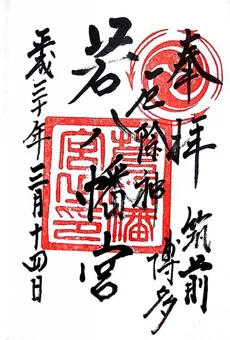 奉拝
筑前
博多
厄除神
若八幡宮
平成三十年三月十四日
若八幡宮之印